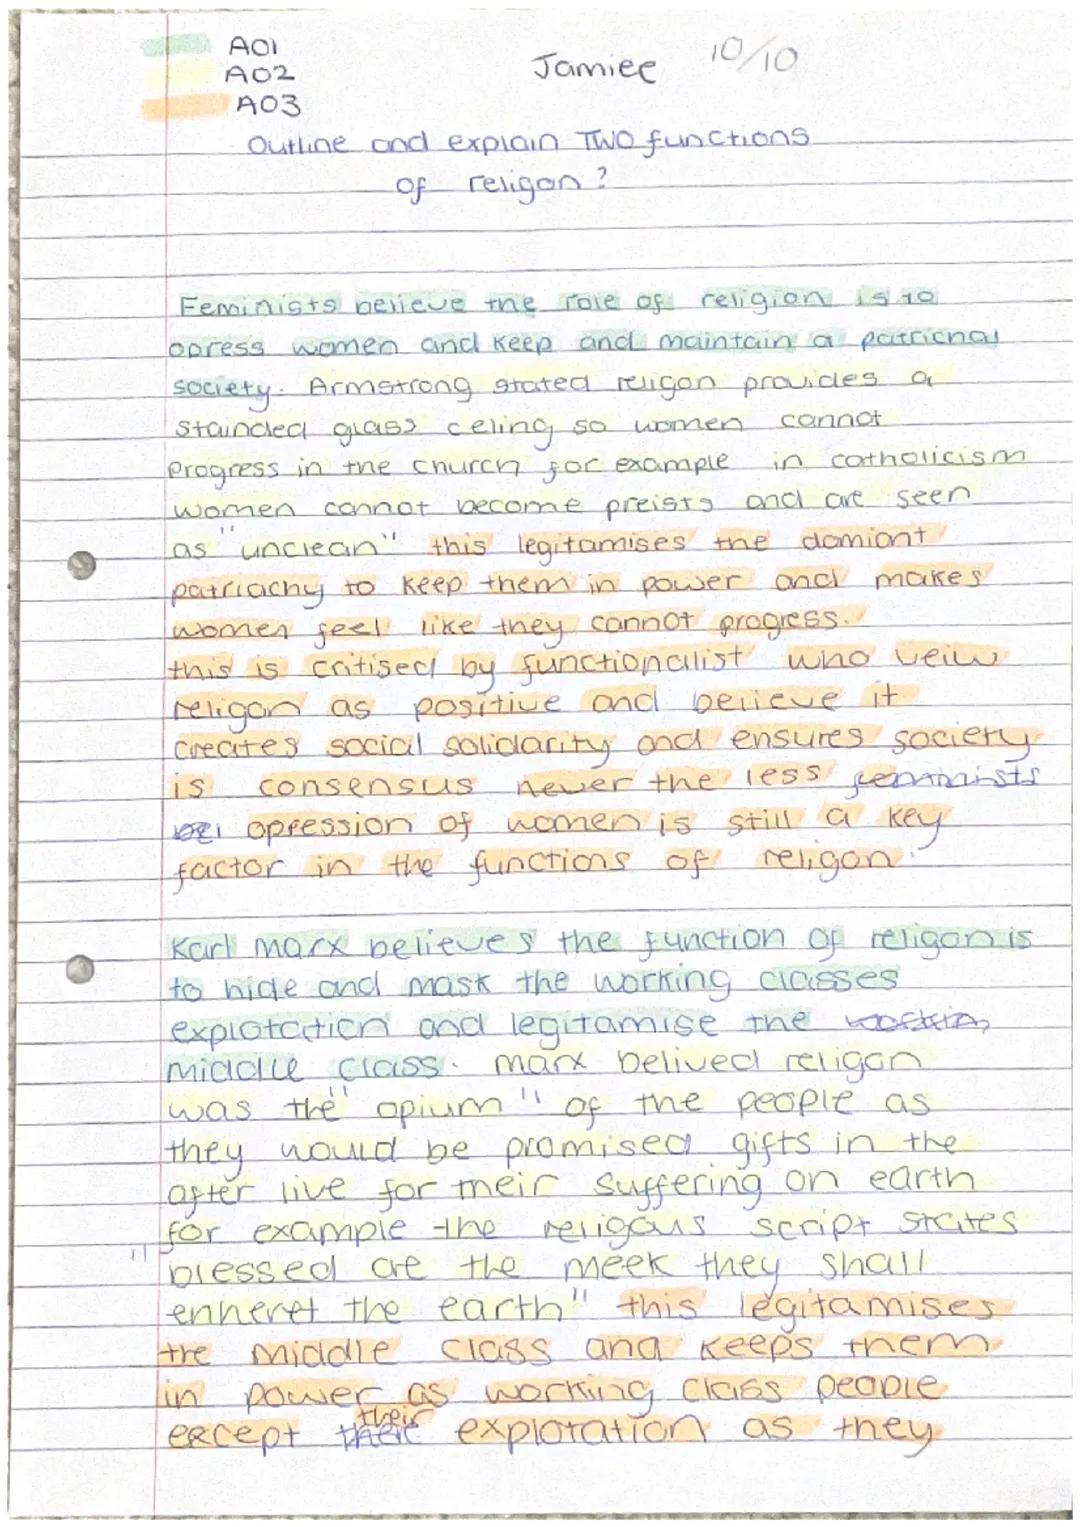 AO1
AO2
AO3
Jamiee
10/10
Outline and explain TWO functions
of religon?
Feminists believe the role of religion is to
opress women and keep and maintain a patrichal
society. Armstrong stated religon provides a
stainded glass celing so women cannot
progress in the church for example in catholicism
women cannot become preists and are seen
as "unclean" this legitamises the domiant
patriachy to keep them in power and makes
women feel like they cannot progress.
this is critised by functionalist who veiw
religon as positive and believe it
creates social solidarity and ensures society
is consensus never the less feminists
opression of women is still a key
factor in the functions of religon.
Karl marx believes the function of religon is
to hide and mask the working classes
explotation and legitamise the
middle class. marx belived religon
was the "opium" of the people as
they would be promised gifts in the
after live for their suffering on earth
for example the religous script states
"blessed are the meek they shall
enheret the earth" this legitamises
the middle class and keeps them
in power as working class people
except their explotation as they